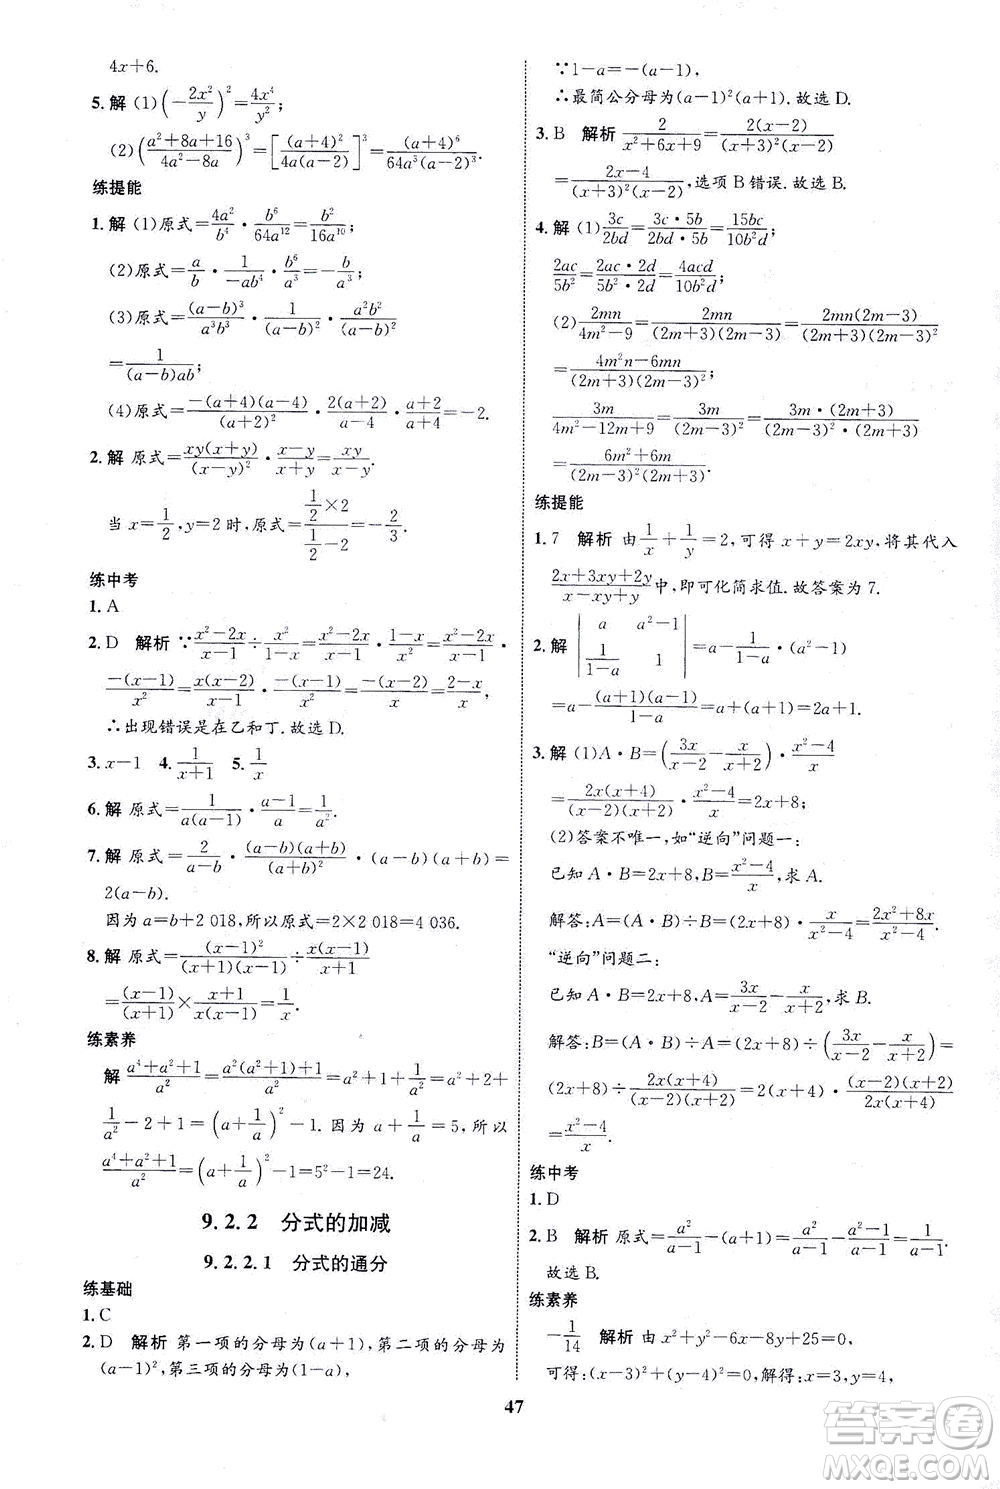 4x+6.
5.解 (1)(-2x²/y)²=4x⁴/y²;
(2)((a²+8a+16)/(4a²-8a))³=[(a+4)²/(4a(a-2))]³=(a+4)⁶/(64a³(a-2)³).
练提能
1.解 (1)原式=4a²/b⁴·b⁶/(64a¹²)=b²/(16a¹⁰);
(2)原式=a/b·1/(-ab⁴)·b⁶/a³=-b/a³;
(3)原式=(a-b)³/(a³b³)·1/(a-b)²·a²b²/(a-b)²
=1/((a-b)ab);
(4)原式=-(a+4)(a-4)/(a+2)²·2(a+2)/(a-4)·(a+2)/(a+4)=-2.
2.解 原式=xy(x+y)/(x-y)²·(x-y)/(x+y)=xy/(x-y).
当 x=1/2,y=2 时,原式=(1/2×2)/(1/2-2)=-2/3.
练中考
1.A
2.D 解析 ∵(x²-2x)/(x-1)÷x²/(1-x)=(x²-2x)/(x-1)·(1-x)/x²=(x²-2x)/(x-1)·
-(x-1)/x²=x(x-2)/(x-1)·-(x-1)/x²=-(x-2)/x=(2-x)/x,
∴出现错误是在乙和丁.故选D.
3.x-1 4.1/(x+1) 5.1/x
6.解 原式=1/(a(a-1))·(a-1)/a=1/a².
7.解 原式=2/(a-b)·(a-b)(a+b)/(a+b)·(a-b)(a-b)=
2(a-b).
因为 a=b+2 018,所以原式=2×2 018=4 036.
8.解 原式=(x-1)²/((x+1)(x-1))÷x(x-1)/(x+1)
=(x-1)/(x+1)×(x+1)/(x(x-1))=1/x.
练素养
解 (a⁴+a²+1)/a²=(a²(a²+1)+1)/a²=a²+1+1/a²=a²+2+
1/a²-2+1=(a+1/a)²-1. 因为 a+1/a=5,所以
(a⁴+a²+1)/a²=(a+1/a)²-1=5²-1=24.
9.2.2 分式的加减
9.2.2.1 分式的通分
练基础
1.C
2.D 解析 第一项的分母为(a+1),第二项的分母为
(a-1)²,第三项的分母为(1-a),
∵1-a=-(a-1),
∴最简公分母为(a-1)²(a+1).故选 D.
3.B 解析 2/(x²+6x+9)=2(x-2)/((x+3)²(x-2))
=(2x-4)/((x+3)²(x-2)),选项 B 错误.故选 B.
4.解 (1)3c/2bd=3c·5b/(2bd·5b)=15bc/10b²d,
2ac/5b²=2ac·2d/(5b²·2d)=4acd/10b²d;
(2)2mn/(4m²-9)=2mn/((2m+3)(2m-3))=2mn(2m-3)/((2m+3)(2m-3)²
=(4m²n-6mn)/((2m+3)(2m-3)²;
3m/(4m²-12m+9)=3m/(2m-3)²=3m·(2m+3)/((2m-3)²(2m+3))
=(6m²+9m)/((2m-3)²(2m+3)).
练提能
1.7 解析 由1/x+1/y=2,可得 x+y=2xy,将其代入
(2x+3xy+2y)/(x-xy+y)中,即可化简求值.故答案为 7.
2.解 |a a²-1; 1/(1-a) 1|=a-1/(1-a)·(a²-1)
=a-(a+1)(a-1)/(1-a)=a+(a+1)=2a+1.
3.解 (1)A·B=(3x/(x-2)-x/(x+2))·(x²-4)/x=
2x(x+4)/((x-2)(x+2))·(x²-4)/x=2x+8;
(2)答案不唯一,如“逆向”问题一:
已知 A·B=2x+8,B=(x²-4)/x,求 A.
解答:A=(A·B)÷B=(2x+8)·x/(x²-4)=(2x²+8x)/(x²-4).
“逆向”问题二:
已知 A·B=2x+8,A=3x/(x-2)-x/(x+2),求 B.
解答:B=(A·B)÷A=(2x+8)÷(3x/(x-2)-x/(x+2))=
(2x+8)÷2x(x+4)/((x-2)(x+2))=2(x+4)·(x-2)(x+2)/(2x(x+4))
=(x²-4)/x.
练中考
1.D
2.B 解析 原式=a²/(a-1)-(a+1)=a²/(a-1)-(a²-1)/(a-1)=1/(a-1).
故选 B.
练素养
-1/14 解析 由 x²+y²-6x-8y+25=0,
可得:(x-3)²+(y-4)²=0,解得:x=3,y=4,
47
答案圈
MXQE.COM